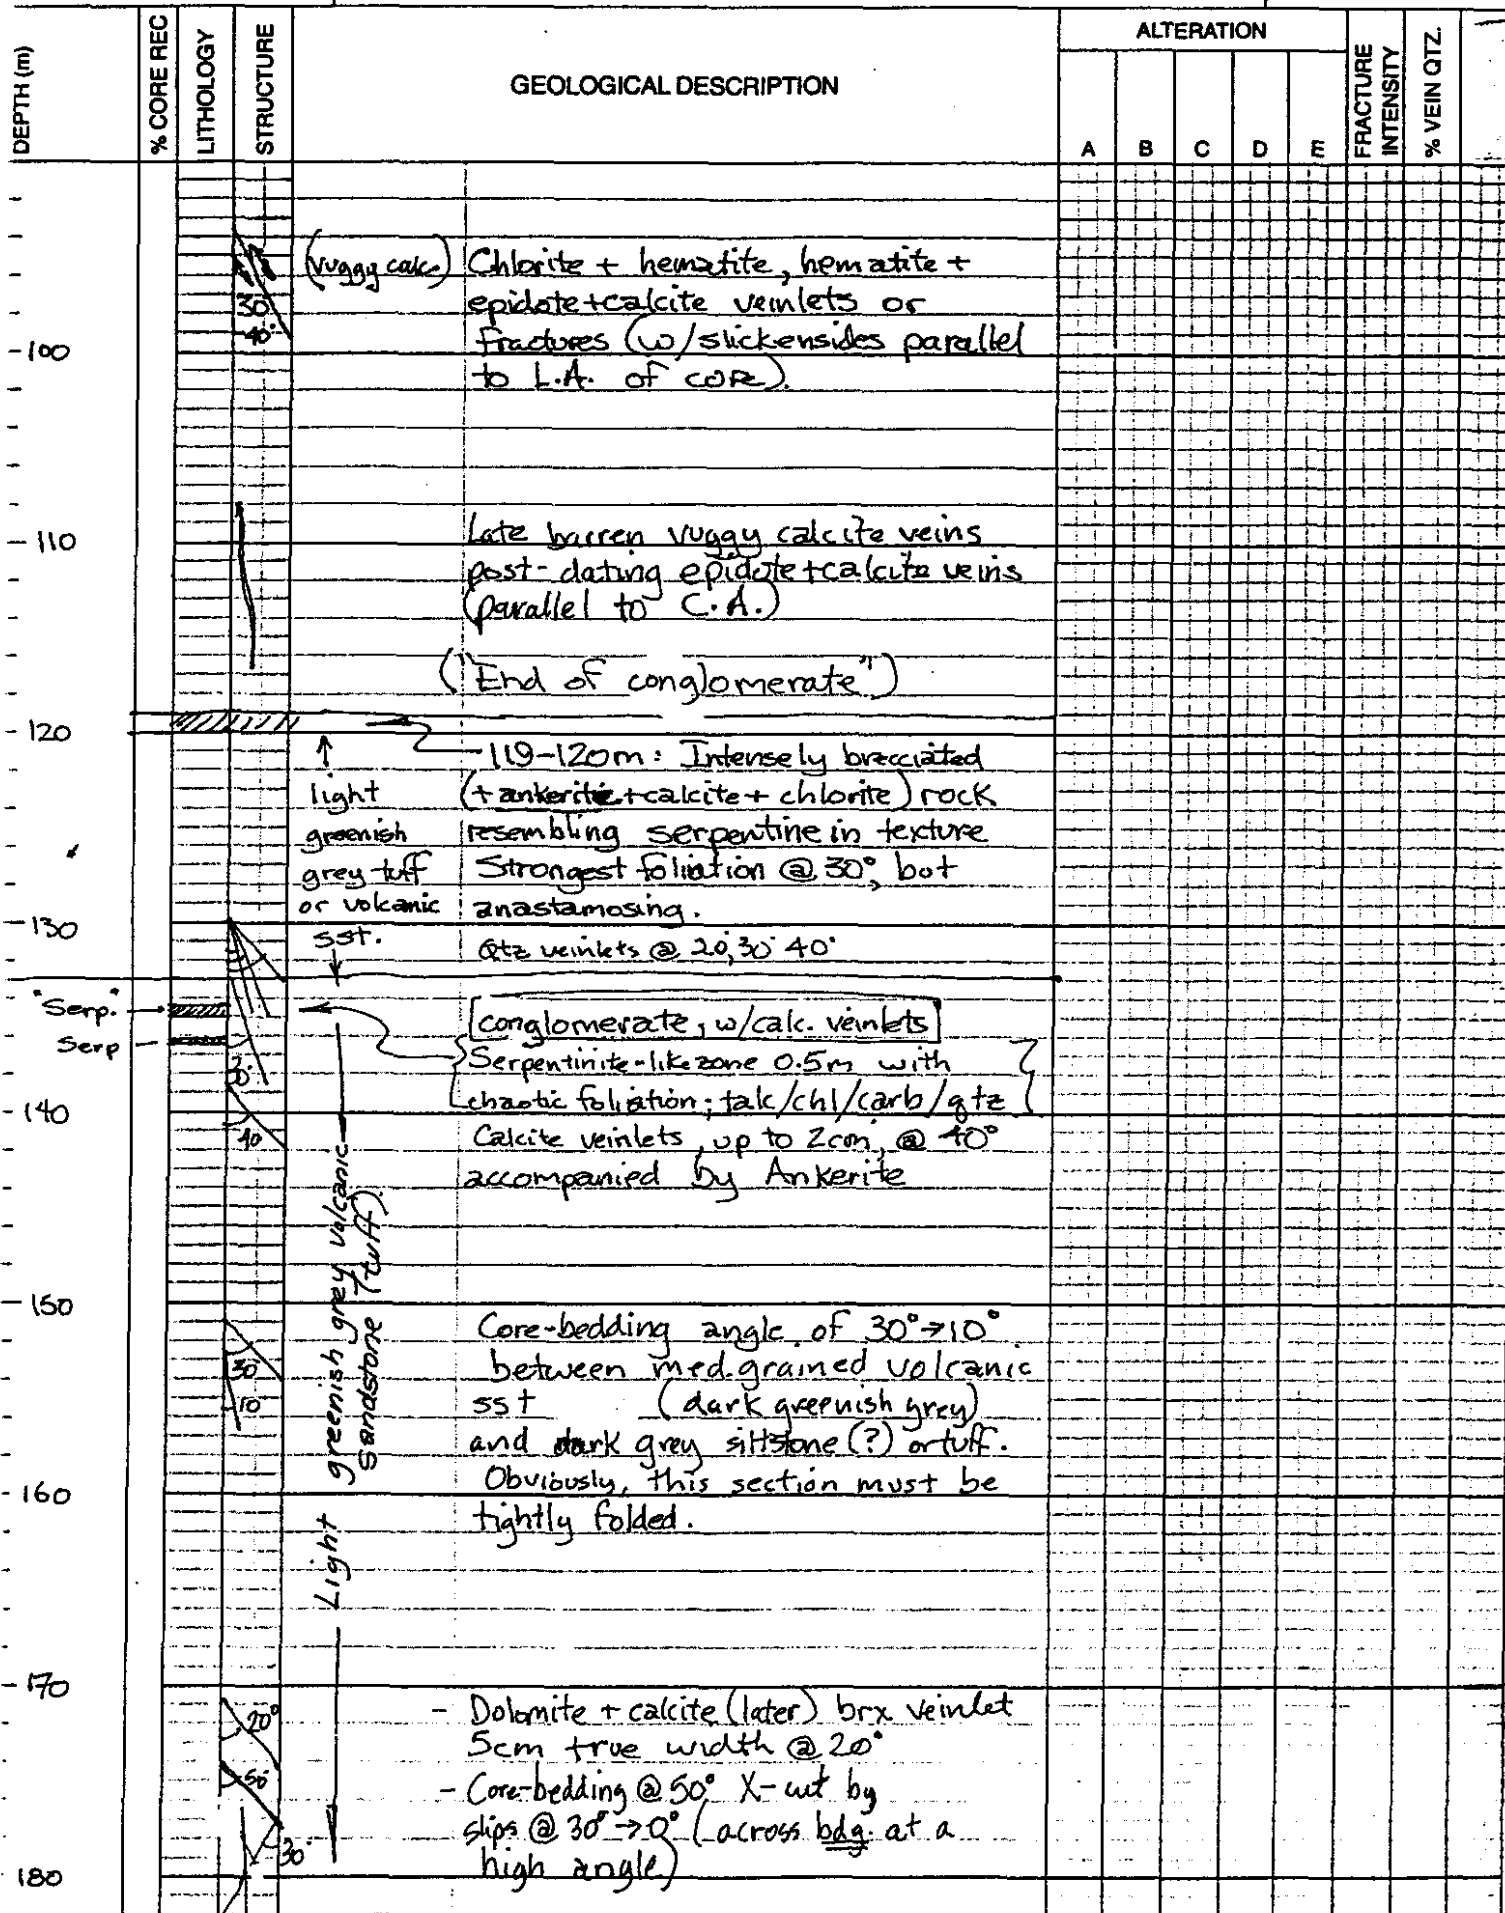 DEPTH (m)
% CORE REC
LITHOLOGY
STRUCTURE
GEOLOGICAL DESCRIPTION
ALTERATION
A B C D E
FRACTURE
INTENSITY
% VEIN QTZ.
(vuggy calc) Chlorite + hematite, hematite +
30° epidote+calcite veinlets or
40° fractures (w/slickensides parallel
-100 to L.A. of core).
-110 Late barren vuggy calcite veins
post-dating epidote+calcite veins
(parallel to C.A.)
("End of conglomerate")
-120
119-120m: Intensely brecciated
(+ankerite+calcite+chlorite) rock
resembling serpentine in texture
Strongest foliation @ 30°, but
anastamosing.
light
greenish
grey tuff
or volcanic
sst.
-130
Qtz veinlets @ 20, 30° 40°
"Serp."
Serp
conglomerate, w/calc. veinlets
Serpentinite-like zone 0.5m with
30°
chaotic foliation; talc/chl/carb/qtz
-140
40
Calcite veinlets, up to 2cm, @ 40°
accompanied by Ankerite
Light greenish grey volcanic
sandstone (tuff)
-150
Core-bedding angle of 30°→10°
30° between med.grained volcanic
10° sst (dark greenish grey)
and dark grey siltstone (?) or tuff.
Obviously, this section must be
-160
tightly folded.
-170
20° - Dolomite + calcite (later) brx veinlet
5cm true width @ 20°
50° - Core-bedding @ 50° X-cut by
slips @ 30°→0° (across bdg. at a
30° high angle)
180